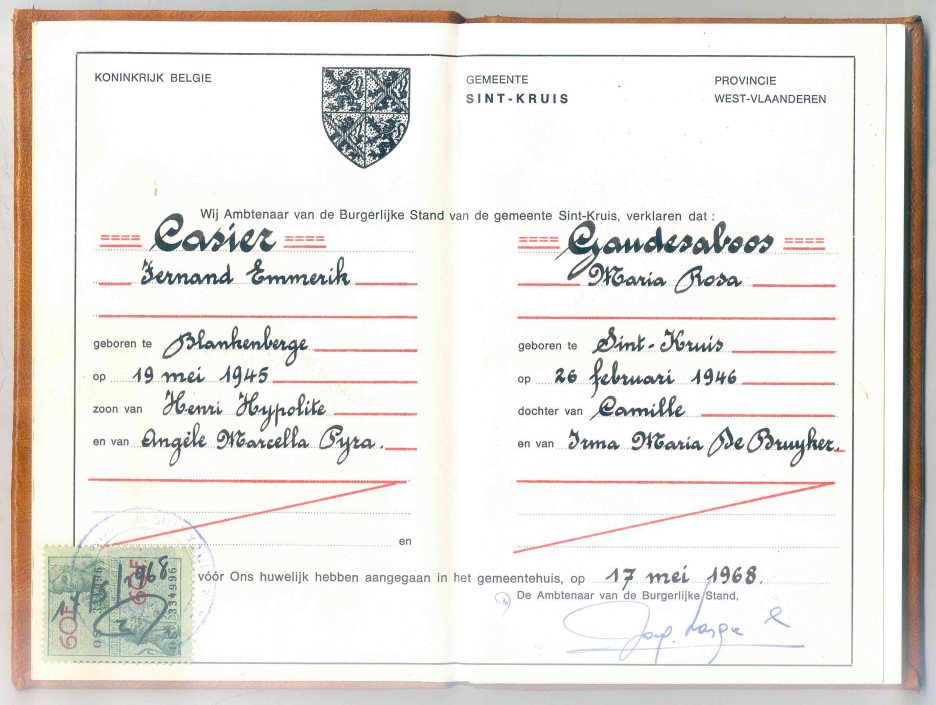 KONINKRIJK BELGIE
GEMEENTE
SINT-KRUIS
PROVINCIE
WEST-VLAANDEREN
Wij Ambtenaar van de Burgerlijke Stand van de gemeente Sint-Kruis, verklaren dat :
==== Casier ====
Fernand Emmerik
geboren te Blankenberge
op 19 mei 1945
zoon van Henri Hypolite
en van Angèle Marcella Pyra.
en
==== Gaudesaboos ====
Maria Rosa
geboren te Sint-Kruis
op 26 februari 1946
dochter van Camille
en van Irma Maria De Bruyker.
vóór Ons huwelijk hebben aangegaan in het gemeentehuis, op 17 mei 1968.
De Ambtenaar van de Burgerlijke Stand,
60F
334996
1968
60F
334996